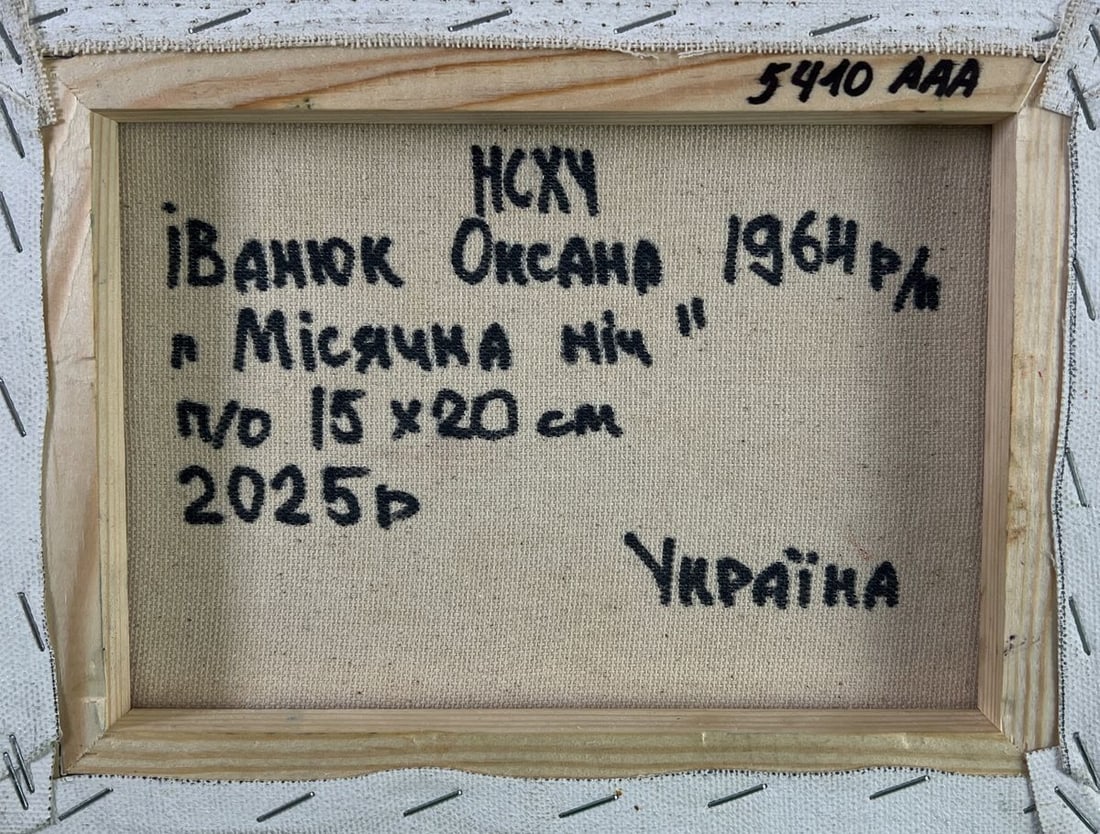 5410 ААА
НСХУ
іВанюк Оксана 1964 р/н
„ Місячна ніч "
п/о 15 х 20 см
2025р
Україна